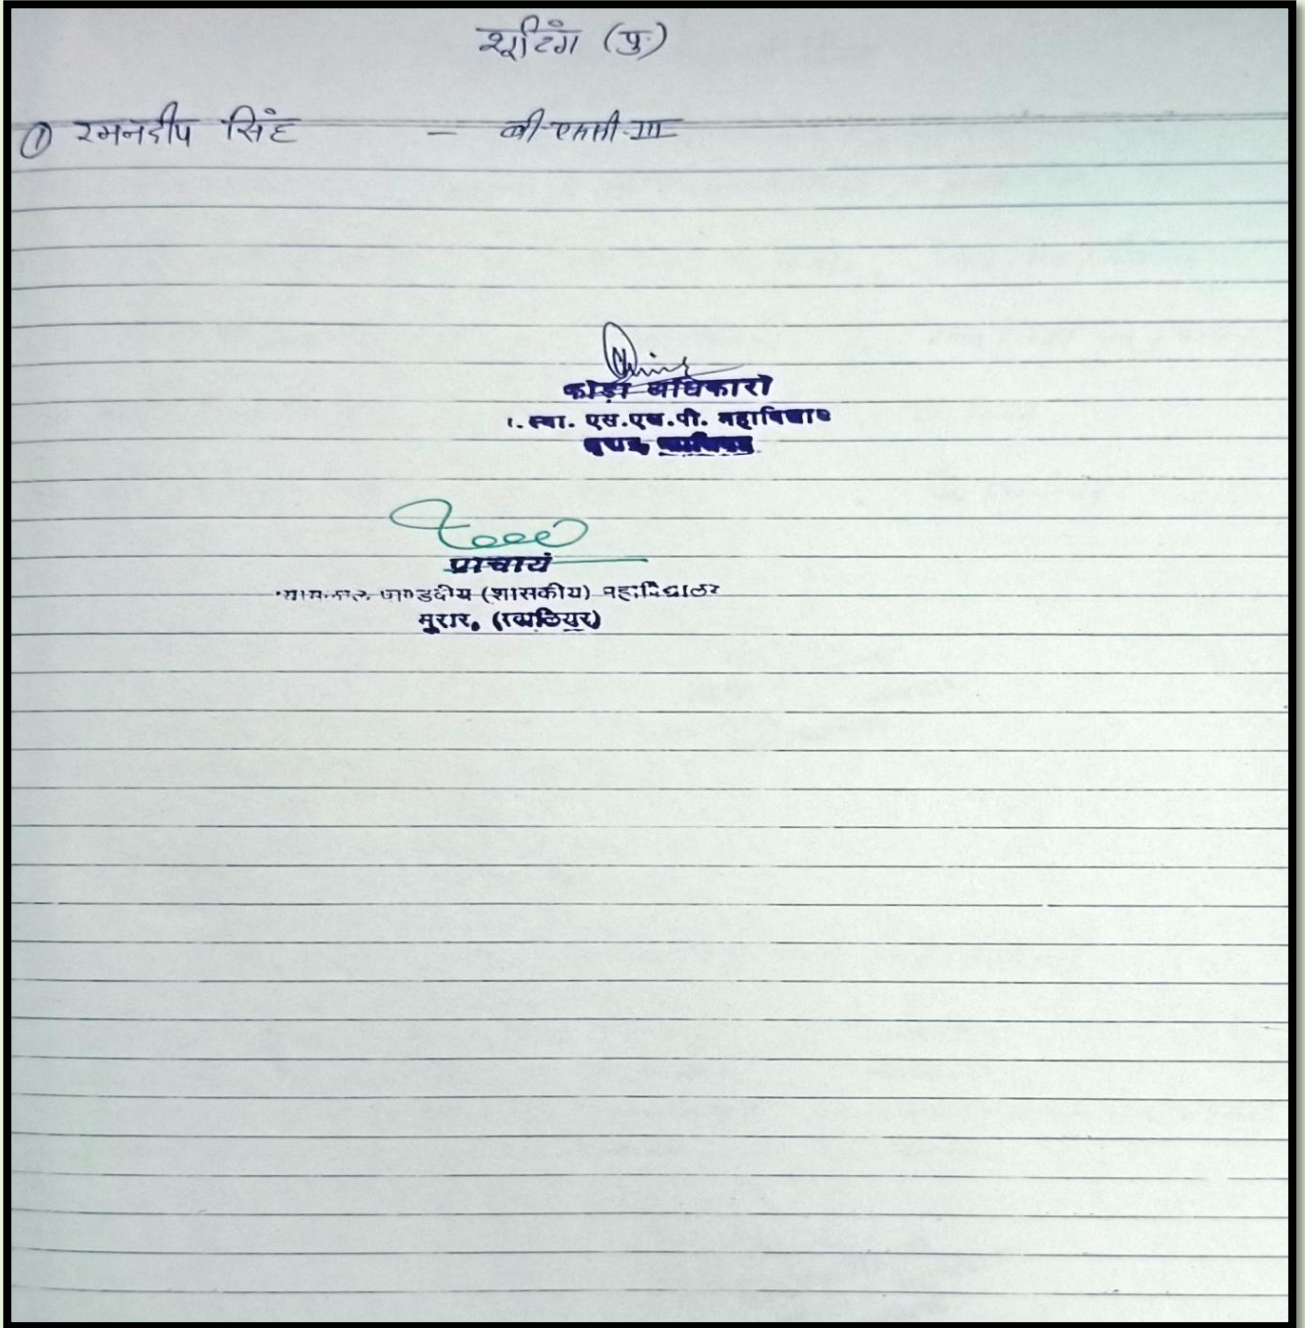 शूटिंग (पु.)
① रमनदीप सिंह - बी.एससी.III
क्रीड़ा अधिकारी
स्वा. एस.एल.पी. महाविद्या
प्राचार्य
पाण्डवीय (शासकीय) महाविद्यालय
मुरार, (ग्वालियर)